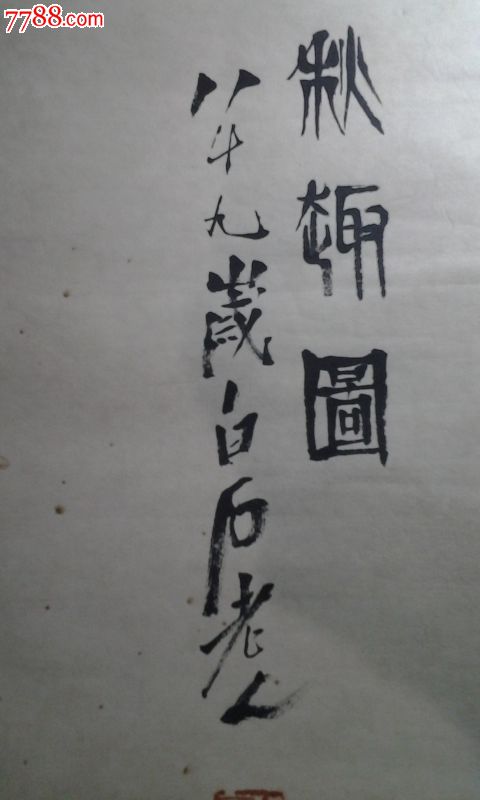 7788.com
秋趣圖
八十九歲白石老人